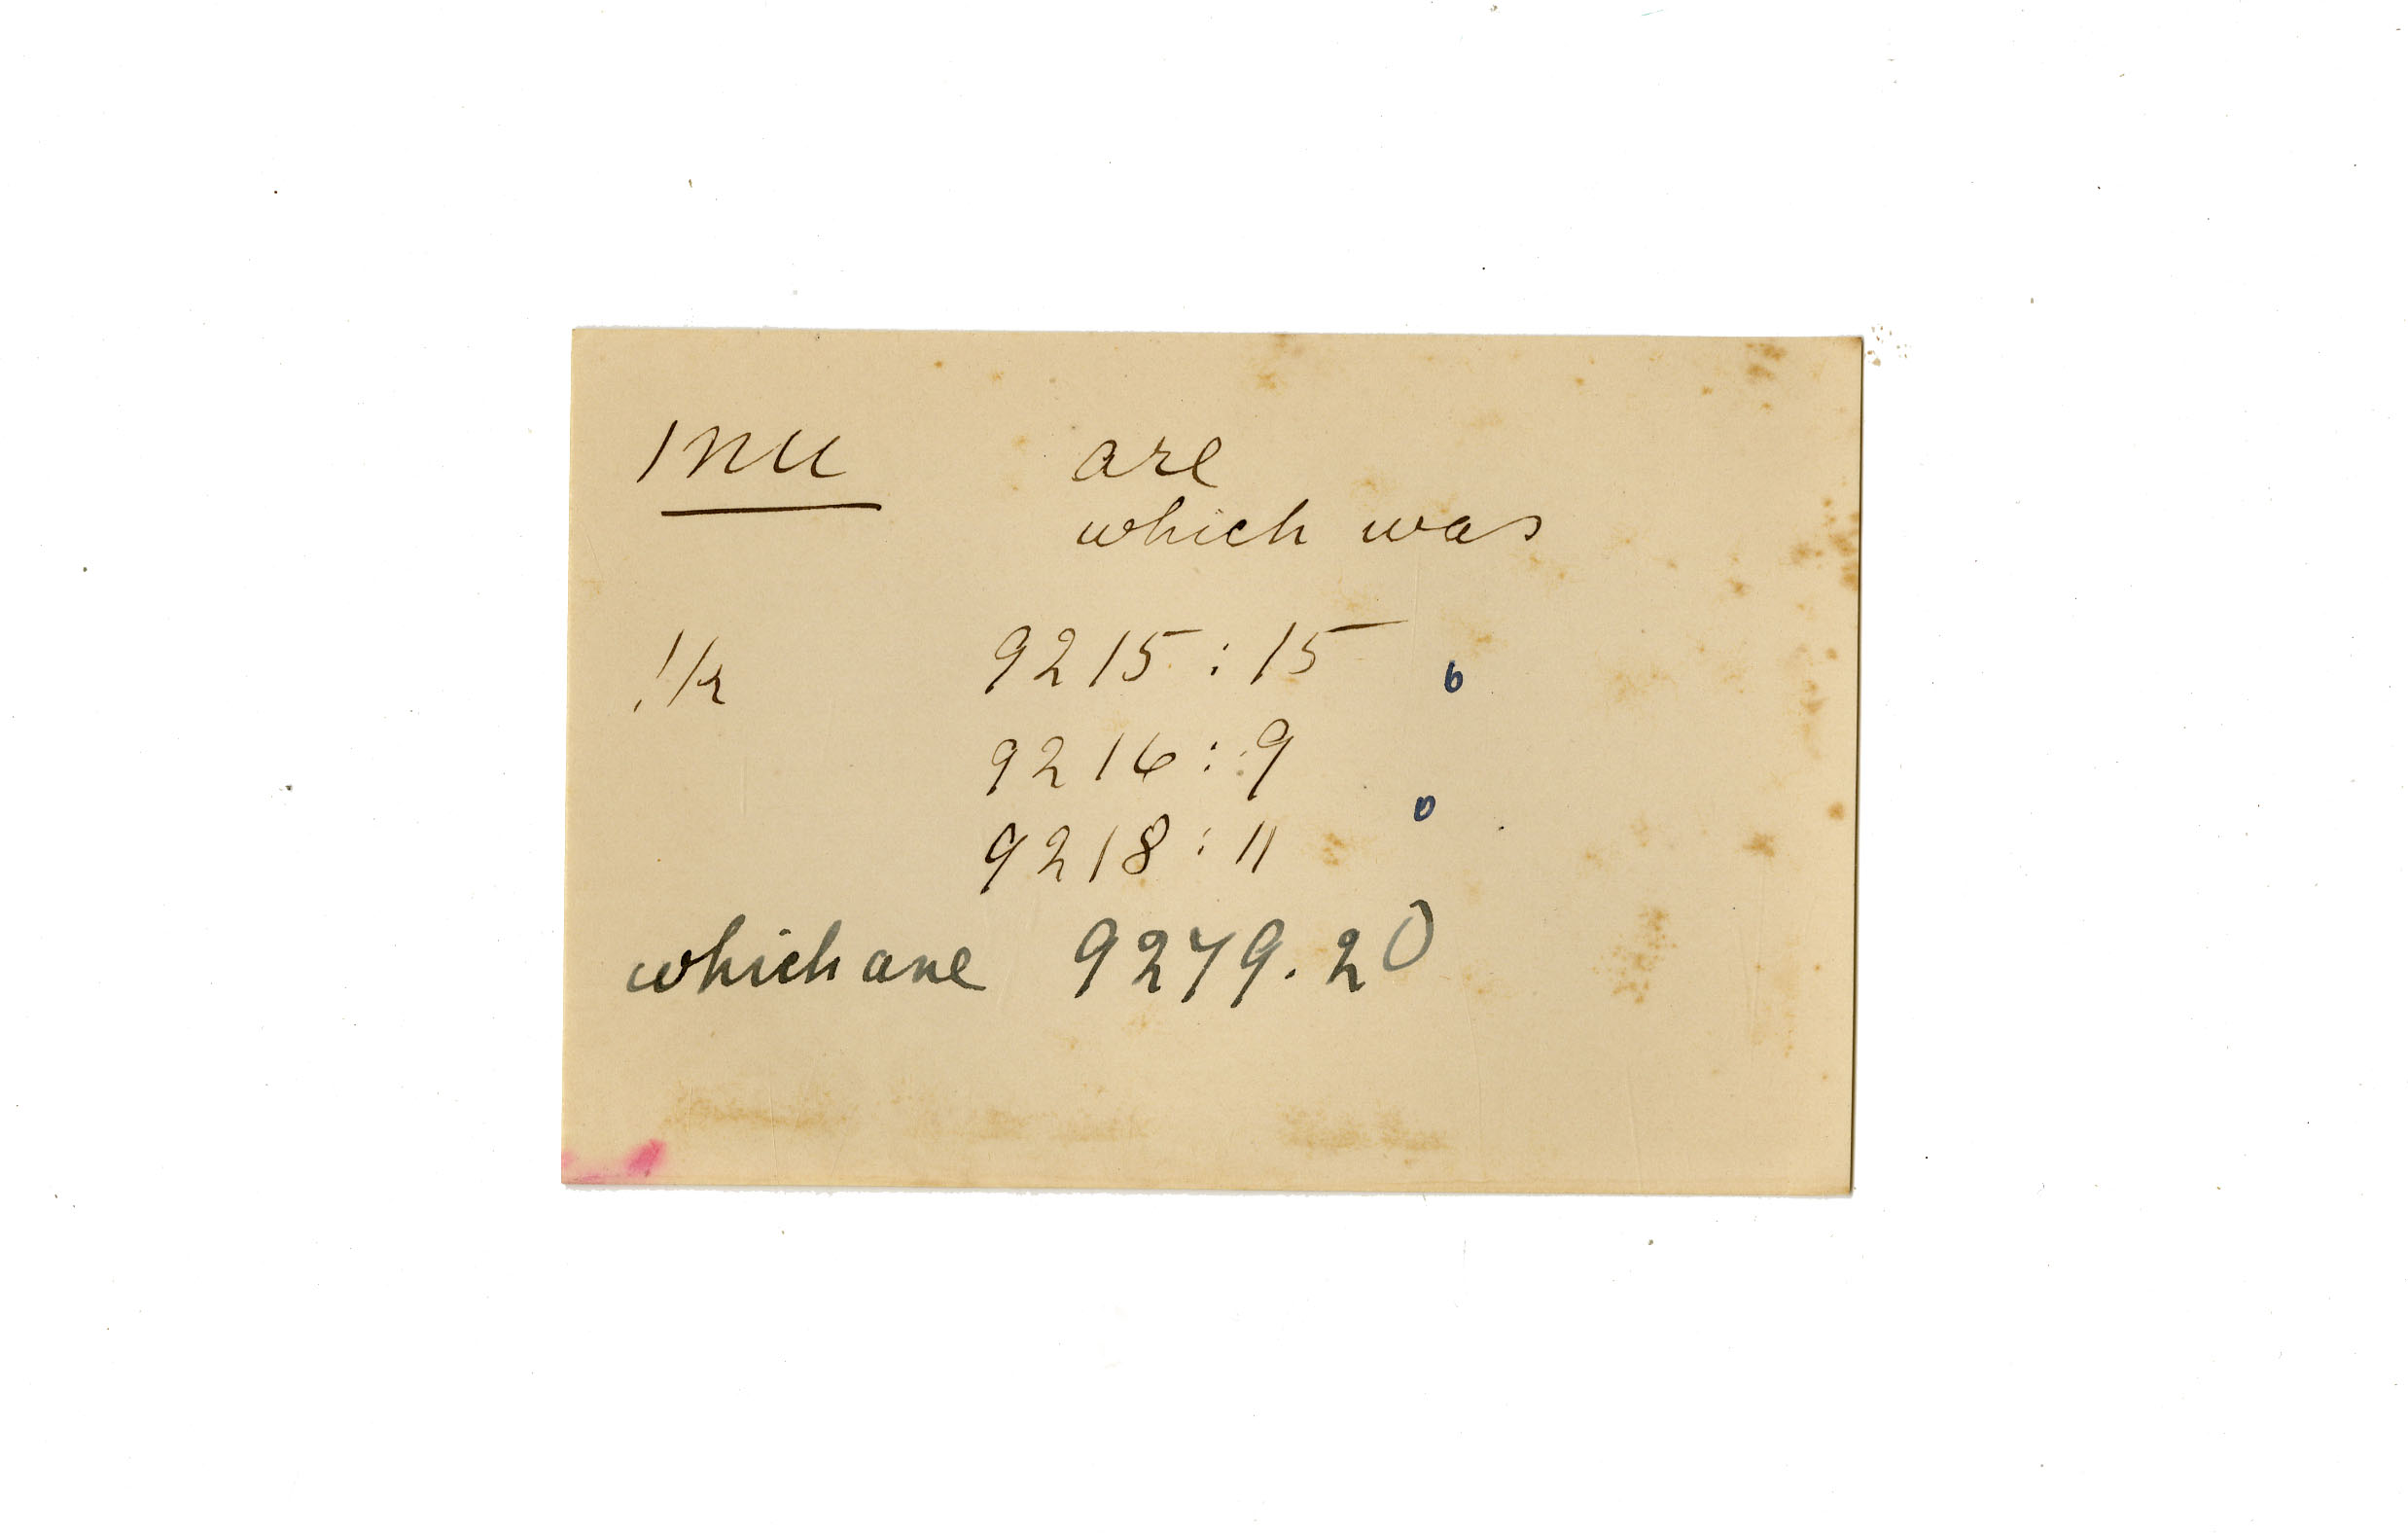 INU are
which was
!/2 9215 : 15
9216 : 9
9218 : 11
which are 9279.20